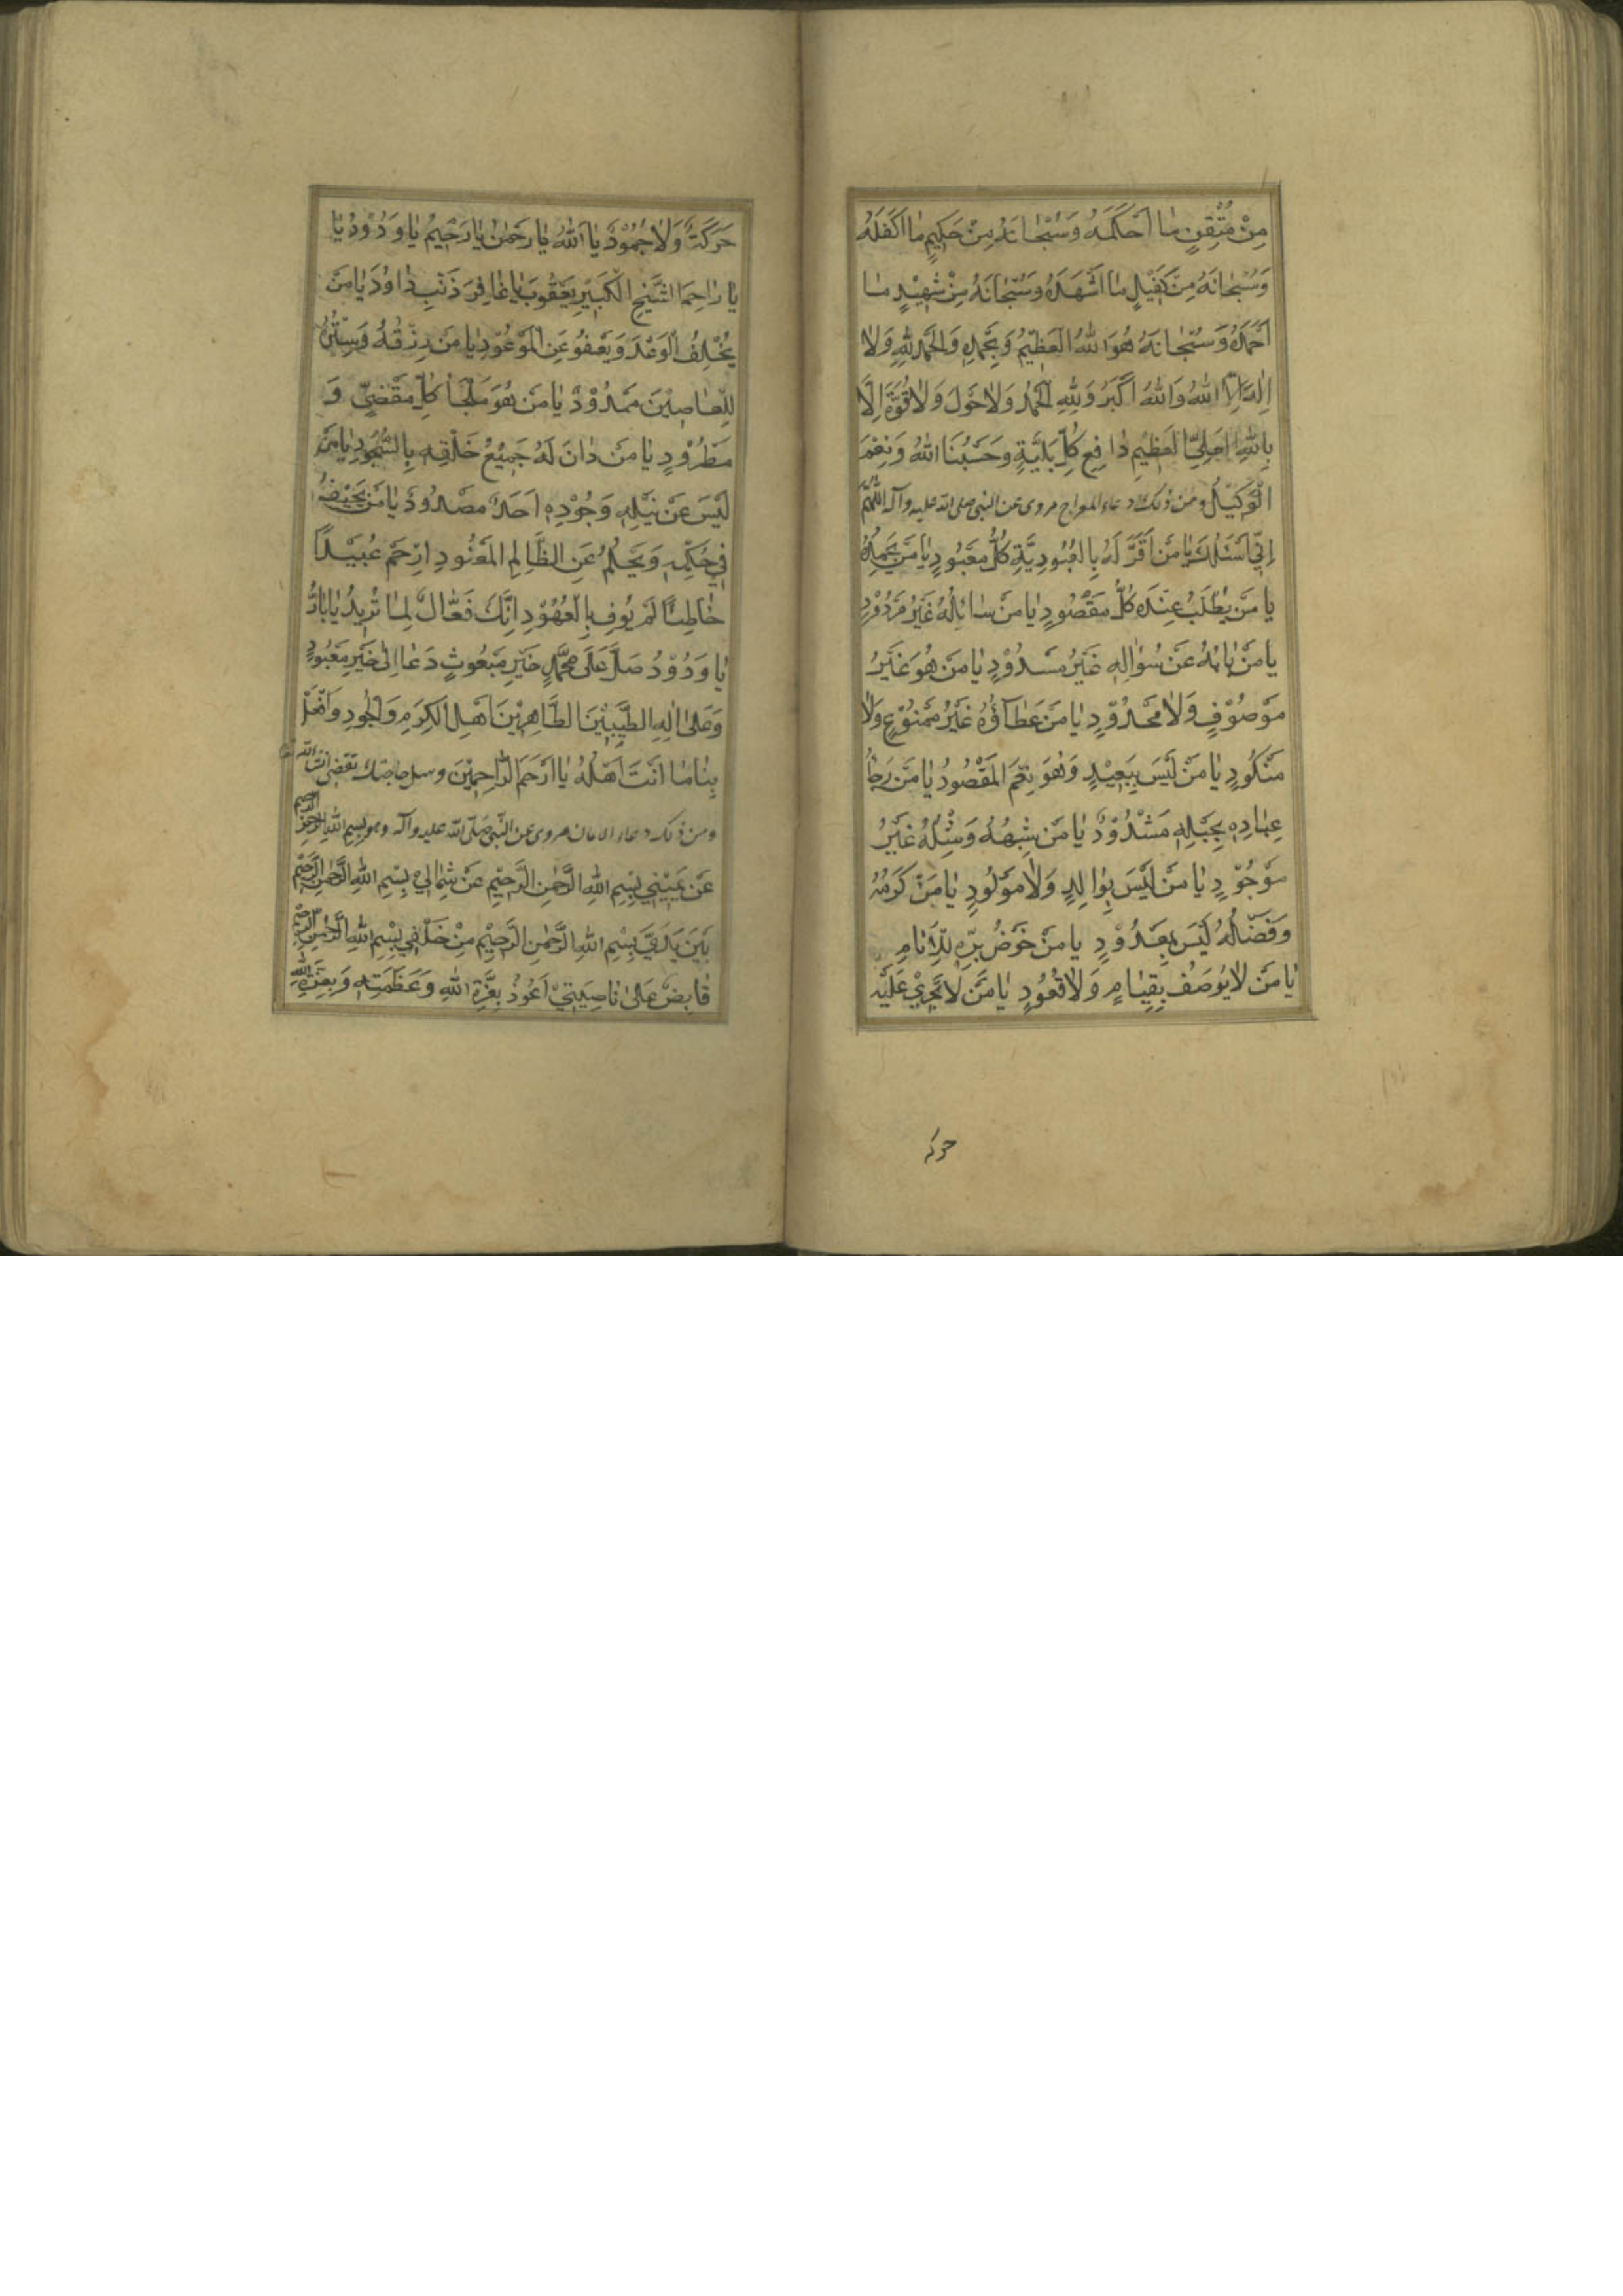 مِنْ مُتْقِنٍ مٰا اَحْكَمَهُ وَسُبْحٰانَهُ مِنْ حَكِيمٍ مٰا اَكْفَلَهُ
وَسُبْحٰانَهُ مِنْ كَفِيْلٍ مٰا اَشْهَدَهُ وَسُبْحٰانَهُ مِنْ شَهِيْدٍ مٰا
اَحْمَدَهُ وَسُبْحٰانَهُ هُوَ اللهُ الْعَظِيْمُ وَبِحَمْدِهِ وَالْحَمْدُ لِلّٰهِ وَلاٰ
اِلٰهَ اِلَّا اللهُ وَاللهُ اَكْبَرُ وَلِلّٰهِ الْحَمْدُ وَلاٰ حَوْلَ وَلاٰ قُوَّةَ اِلَّا
بِاللهِ الْعَلِيِّ الْعَظِيْمِ دٰافِعِ كُلِّ بَلِيَّةٍ وَحَسْبُنَا اللهُ وَنِعْمَ
الْوَكِيْلُ ومن ذلك دعاء المعراج مروى عن النبى صلى الله عليه وآله اَللّٰهُمَّ
اِنِّي اَسْئَلُكَ يٰا مَنْ اَقَرَّ لَهُ بِالْعُبُودِيَّةِ كُلُّ مَعْبُودٍ يٰا مَنْ يَحْمَدُهُ
يٰا مَنْ يُطْلَبُ عِنْدَهُ كُلُّ مَقْصُودٍ يٰا مَنْ سٰائِلُهُ غَيْرُ مَرْدُوْدٍ
يٰا مَنْ بٰابُهُ عَنْ سُؤٰالِهِ غَيْرُ مَسْدُوْدٍ يٰا مَنْ هُوَ غَيْرُ
مَوْصُوْفٍ وَلاٰ مَحْدُوْدٍ يٰا مَنْ عَطٰاؤُهُ غَيْرُ مَمْنُوْعٍ وَلاٰ
مَنْكُودٍ يٰا مَنْ لَيْسَ بِبَعِيْدٍ وَهُوَ نِعْمَ الْمَقْصُودُ يٰا مَنْ رَجٰاءُ
عِبٰادِهِ بِحَبْلِهِ مَشْدُوْدٌ يٰا مَنْ شِبْهُهُ وَمِثْلُهُ غَيْرُ
مَوْجُوْدٍ يٰا مَنْ لَيْسَ بِوٰالِدٍ وَلاٰ مَوْلُودٍ يٰا مَنْ كَرَمُهُ
وَفَضْلُهُ لَيْسَ بِمَعْدُوْدٍ يٰا مَنْ حَوْضُ بِرِّهِ لِلْاَنٰامِ
يٰا مَنْ لاٰ يُوصَفُ بِقِيٰامٍ وَلاٰ قُعُودٍ يٰا مَنْ لاٰ تَجْرِيْ عَلَيْهِ
حركه
حَرَكَةٌ وَلاٰ جُمُوْدٌ يٰا اَللهُ يٰا رَحْمٰنُ يٰا رَحِيْمُ يٰا وَدُوْدُ يٰا
يٰا رٰاحِمَ الشَّيْخِ الْكَبِيْرِ يَعْقُوبَ يٰا غٰافِرَ ذَنْبِ دٰاوُدَ يٰا مَنْ
يُخْلِفُ الْوَعْدَ وَيَعْفُو عَنِ الْمَوْعُوْدِ يٰا مَنْ رِزْقُهُ وَسِتْرُهُ
لِلْعٰاصِيْنَ مَمْدُوْدٌ يٰا مَنْ هُوَ مَلْجَأُ كُلِّ مَقْصِيٍّ وَ
مَطْرُوْدٍ يٰا مَنْ دٰانَ لَهُ جَمِيْعُ خَلْقِهِ بِالسُّجُوْدِ يٰا مَنْ
لَيْسَ عَنْ نَيْلِهِ وَجُوْدِهِ اَحَدٌ مَصْدُوْدٌ يٰا مَنْ يَحِيْفُ
فِي حُكْمِهِ وَيَحْلُمُ عَنِ الظّٰالِمِ الْعَنُودِ اِرْحَمْ عُبَيْدًا
خٰاطِئًا لَمْ يُوفِ بِالْعُهُوْدِ اِنَّكَ فَعّٰالٌ لِمٰا تُرِيْدُ يٰا بٰارُّ
يٰا وَدُوْدُ صَلِّ عَلٰى مُحَمَّدٍ خَيْرِ مَبْعُوثٍ دَعٰا اِلٰى خَيْرِ مَعْبُودٍ
وَعَلٰى اٰلِهِ الطَّيِّبِيْنَ الطَّاهِرِيْنَ اَهْلِ الْكَرَمِ وَالْجُودِ وَافْعَلْ
بِنٰا مٰا اَنْتَ اَهْلُهُ يٰا اَرْحَمَ الرّٰاحِمِيْنَ وسل حاجتك تقضى انشاء الله
ومن ذلك دعاء الامان مروى عن النبى صلى الله عليه وآله وهو بِسْمِ اللهِ الرَّحْمٰنِ الرَّحِيْمِ
عَنْ يَمِيْنِي بِسْمِ اللهِ الرَّحْمٰنِ الرَّحِيْمِ عَنْ شِمٰالِيْ بِسْمِ اللهِ الرَّحْمٰنِ الرَّحِيْمِ
بَيْنَ يَدَيَّ بِسْمِ اللهِ الرَّحْمٰنِ الرَّحِيْمِ مِنْ خَلْفِي بِسْمِ اللهِ الرَّحْمٰنِ الرَّحِيْمِ
قٰابِضٌ عَلٰى نٰاصِيَتِيْ اَعُوْذُ بِعِزَّةِ اللهِ وَعَظَمَتِهِ وَبِعِزَّةِ اللهِ